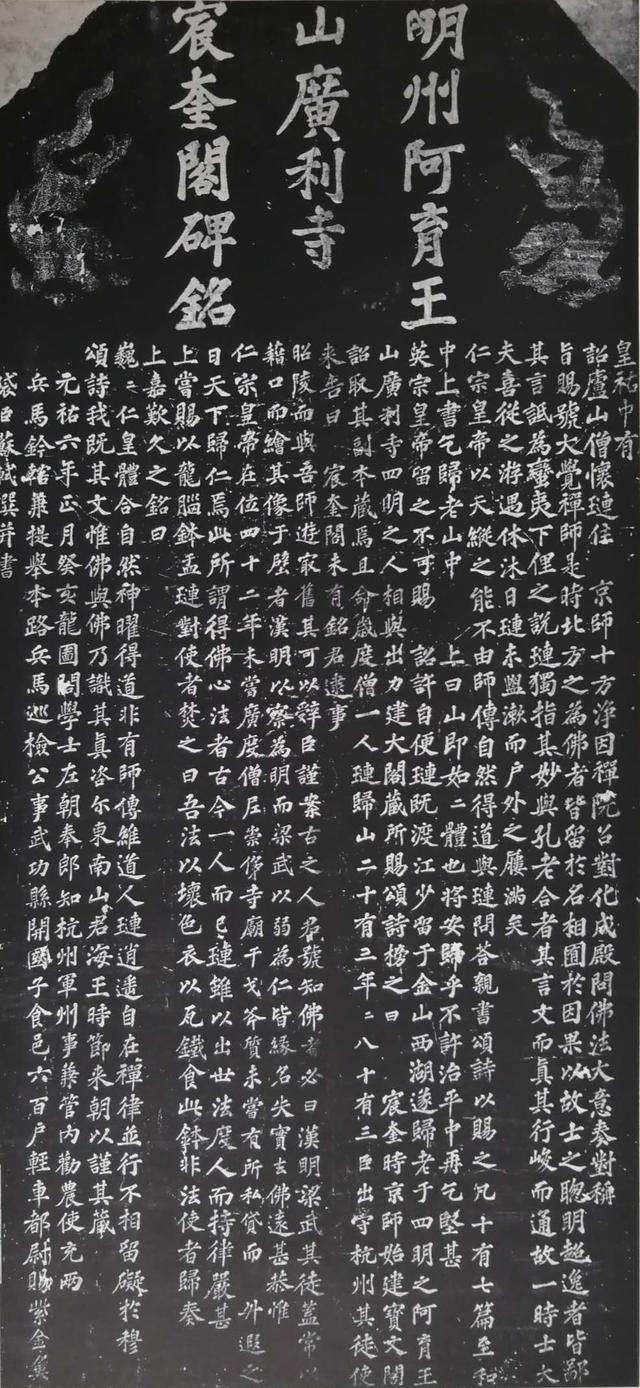 明州阿育王
山廣利寺
宸奎閣碑銘
皇祐中有
詔廬山僧懷璉住　京師十方淨因禪院召對化成殿問佛法大意奏對稱
旨賜號大覺禪師是時北方之為佛者皆留於名相囿於因果以故士之聰明超逸者皆鄙
其言詆為蠻夷下俚之說璉獨指其妙與孔老合者其言文而真其行峻而通故一時士大
夫喜從之游遇休沐日璉未盥漱而戶外之屨滿矣
仁宗皇帝以天縱之能不由師傳自然得道與璉問答親書頌詩以賜之凡十有七篇至和
中上書乞歸老山中　上曰山即如〻體也將安歸乎不許治平中再乞堅甚
英宗皇帝留之不可賜　詔許自便璉既渡江少留于金山西湖遂歸老于四明之阿育王
山廣利寺四明之人相與出力建大閣藏所賜頌詩榜之曰　宸奎時京師始建寶文閣
詔取其副本藏焉且命歲度僧一人璉歸山二十有三年〻八十有三臣出守杭州其徒使
來告曰　宸奎閣未有銘君逮事
昭陵而與吾師遊㝡舊其可以辭臣謹案古之人君號知佛者必曰漢明梁武其徒蓋常以
藉口而繪其像于壁者漢明以察為明而梁武以弱為仁皆緣名失實去佛遠甚恭惟
仁宗皇帝在位四十二年未嘗廣度僧尼崇侈寺廟干戈斧質未嘗有所私貸而　升遐之
日天下歸仁焉此所謂得佛心法者古今一人而已璉雖以出世法度人而持律嚴甚
上嘗賜以龍腦鉢盂璉對使者焚之曰吾法以壞色衣以瓦鐵食此鉢非法使者歸奏
上嘉歎久之銘曰
巍〻仁皇體合自然神曜得道非有師傳維道人璉逍遙自在禪律並行不相留礙於穆
頌詩我既其文惟佛與佛乃識其真咨尓東南山君海王時節來朝以謹其藏
元祐六年正月癸亥龍圖閣學士左朝奉郎知杭州軍州事兼管內勸農使充兩
兵馬鈐轄兼提舉本路兵馬巡檢公事武功縣開國子食邑六百戶輕車都尉賜紫金魚
袋臣蘇軾撰并書